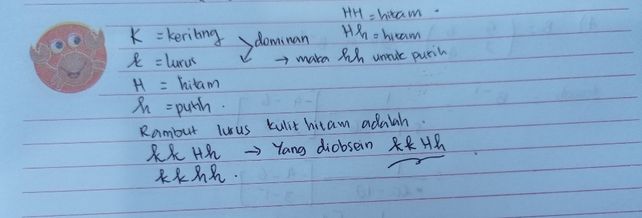 HH = hitam.
K = keriting > dominan Hh = hitam
k = lurus → maka hh untuk putih
H = hitam
h = putih.
Rambut lurus kulit hitam adalah.
kk Hh → Yang diobsein kk Hh
kk hh.